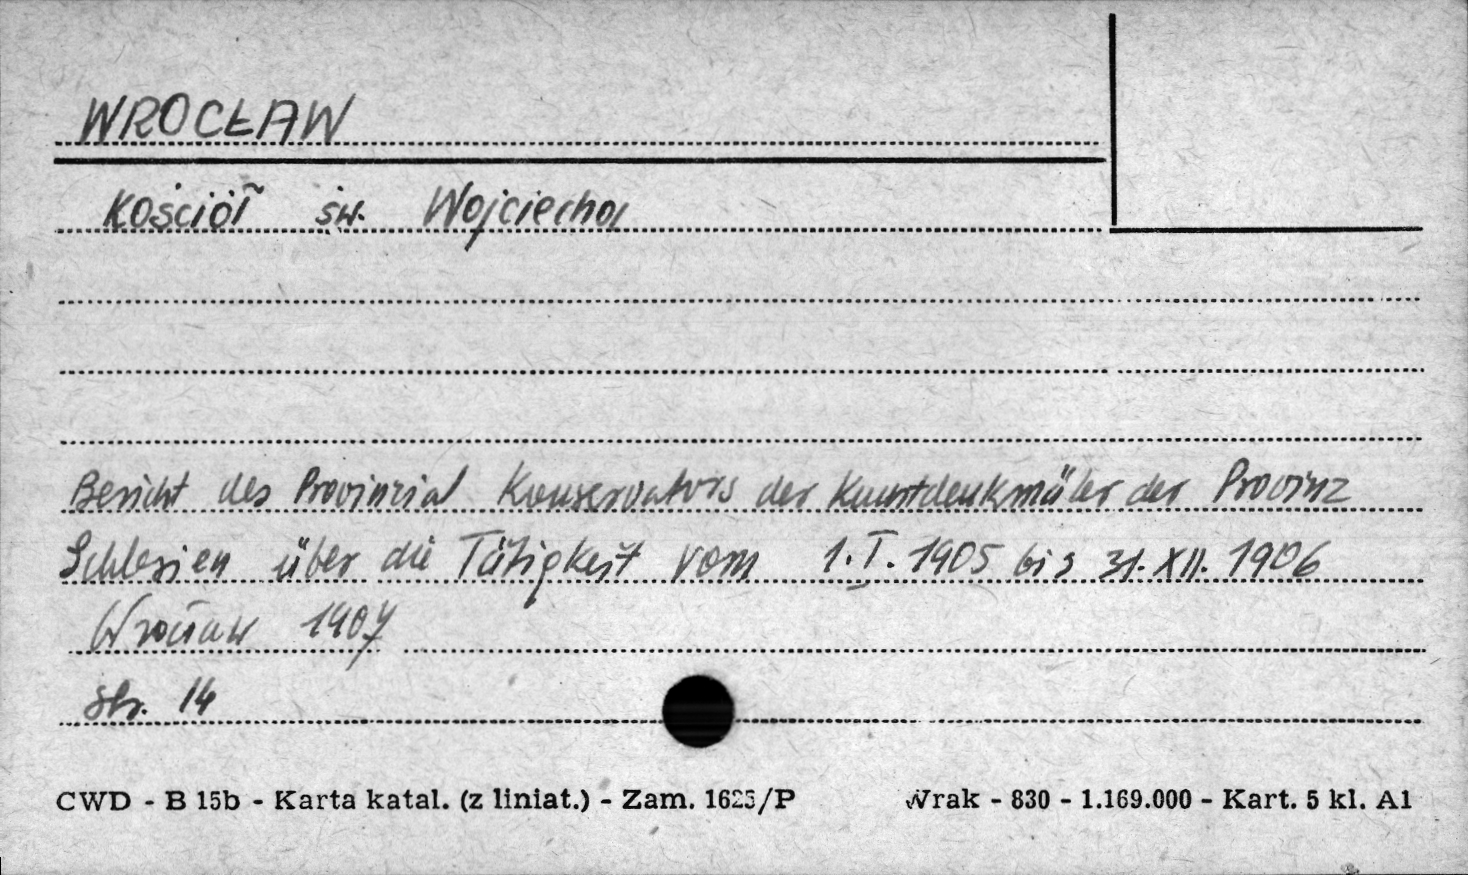 WROCŁAW
Kościół św. Wojciecha
Bericht des Provinzial Konservators der Kunstdenkmäler der Provinz
Schlesien über die Tätigkeit vom 1.I.1905 bis 31.XII.1906
Wrocław 1907
str. 14
CWD - B 15b - Karta katal. (z liniat.) - Zam. 1625/P
Wrak - 830 - 1.169.000 - Kart. 5 kl. A1